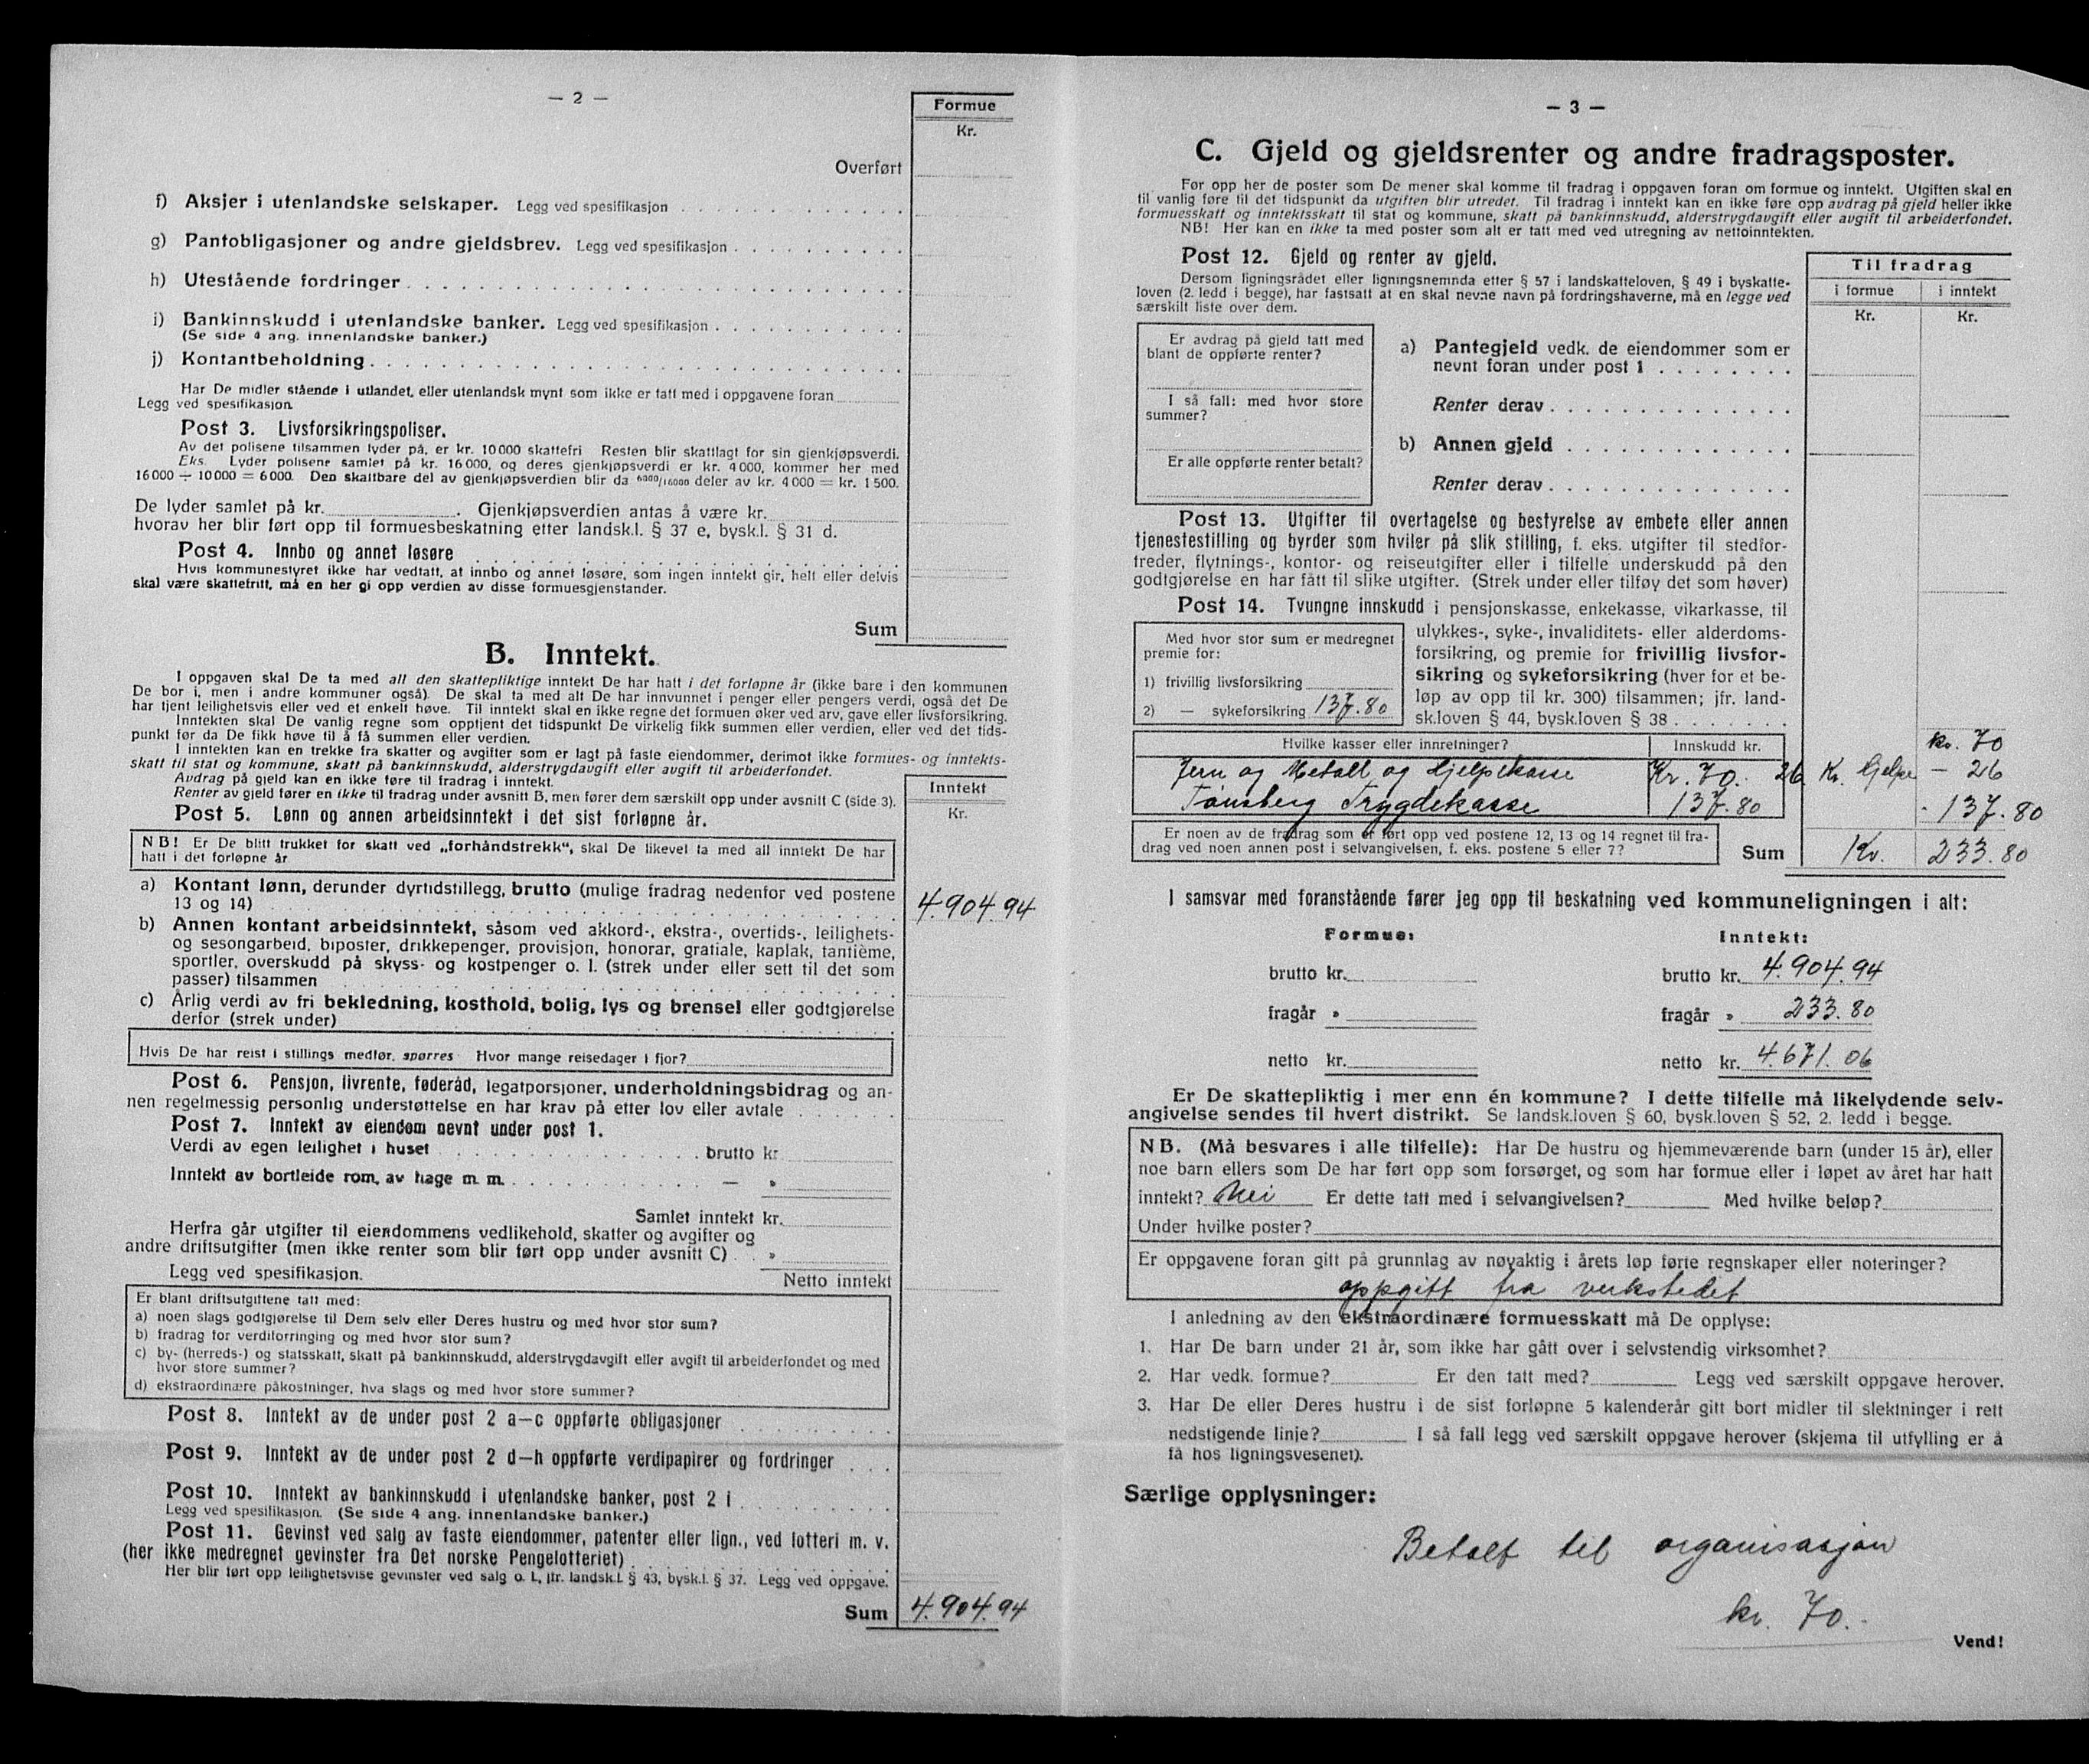 — 2 —
Formue
Kr.
Overført
f) Aksjer i utenlandske selskaper. Legg ved spesifikasjon
g) Pantobligasjoner og andre gjeldsbrev. Legg ved spesifikasjon
h) Utestående fordringer
i) Bankinnskudd i utenlandske banker. Legg ved spesifikasjon
(Se side 4 ang. innenlandske banker.)
j) Kontantbeholdning
Har De midler stående i utlandet, eller utenlandsk mynt som ikke er tatt med i oppgavene foran
Legg ved spesifikasjon
Post 3. Livsforsikringspoliser.
Av det polisene tilsammen lyder på, er kr. 10 000 skattefri Resten blir skattlagt for sin gjenkjøpsverdi.
Eks. Lyder polisene samlet på kr. 16 000, og deres gjenkjøpsverdi er kr. 4 000, kommer her med
16 000 ÷ 10 000 = 6 000. Den skattbare del av gjenkjøpsverdien blir da 6000/16000 deler av kr. 4 000 = kr. 1 500.
De lyder samlet på kr. . Gjenkjøpsverdien antas å være kr.
hvorav her blir ført opp til formuesbeskatning etter landsk.l. § 37 e, bysk.l. § 31 d.
Post 4. Innbo og annet løsøre
Hvis kommunestyret ikke har vedtatt, at innbo og annet løsøre, som ingen inntekt gir, helt eller delvis
skal være skattefritt, må en her gi opp verdien av disse formuesgjenstander.
Sum
B. Inntekt.
I oppgaven skal De ta med all den skattepliktige inntekt De har hatt i det forløpne år (ikke bare i den kommunen
De bor i, men i andre kommuner også). De skal ta med alt De har innvunnet i penger eller pengers verdi, også det De
har tjent leilighetsvis eller ved et enkelt høve. Til inntekt skal en ikke regne det formuen øker ved arv, gave eller livsforsikring.
Inntekten skal De vanlig regne som opptjent det tidspunkt De virkelig fikk summen eller verdien, eller ved det tids-
punkt før da De fikk høve til å få summen eller verdien.
I inntekten kan en trekke fra skatter og avgifter som er lagt på faste eiendommer, derimot ikke formues- og inntekts-
skatt til stat og kommune, skatt på bankinnskudd, alderstrygdavgift eller avgift til arbeiderfondet.
Avdrag på gjeld kan en ikke føre til fradrag i inntekt.
Renter av gjeld fører en ikke til fradrag under avsnitt B, men fører dem særskilt opp under avsnitt C (side 3).
Inntekt
Kr.
Post 5. Lønn og annen arbeidsinntekt i det sist forløpne år.
NB! Er De blitt trukket for skatt ved „forhåndstrekk“, skal De likevel ta med all inntekt De har
hatt i det forløpne år
a) Kontant lønn, derunder dyrtidstillegg, brutto (mulige fradrag nedenfor ved postene
13 og 14) 4.904.94
b) Annen kontant arbeidsinntekt, såsom ved akkord-, ekstra-, overtids-, leilighets-
og sesongarbeid, biposter, drikkepenger, provisjon, honorar, gratiale, kaplak, tantième,
sportler, overskudd på skyss- og kostpenger o. l. (strek under eller sett til det som
passer) tilsammen
c) Årlig verdi av fri bekledning, kosthold, bolig, lys og brensel eller godtgjørelse
derfor (strek under)
Hvis De har reist i stillings medfør, spørres Hvor mange reisedager i fjor?
Post 6. Pensjon, livrente, føderåd, legatporsjoner, underholdningsbidrag og an-
nen regelmessig personlig understøttelse en har krav på etter lov eller avtale
Post 7. Inntekt av eiendom nevnt under post 1.
Verdi av egen leilighet i huset brutto kr.
Inntekt av bortleide rom, av hage m. m. — „
Samlet inntekt kr.
Herfra går utgifter til eiendommens vedlikehold, skatter og avgifter og
andre driftsutgifter (men ikke renter som blir ført opp under avsnitt C) „
Legg ved spesifikasjon.
Netto inntekt
Er blant driftsutgiftene tatt med:
a) noen slags godtgjørelse til Dem selv eller Deres hustru og med hvor stor sum?
b) fradrag for verdiforringing og med hvor stor sum?
c) by- (herreds-) og statsskatt, skatt på bankinnskudd, alderstrygdavgift eller avgift til arbeiderfondet og med
hvor store summer?
d) ekstraordinære påkostninger, hva slags og med hvor store summer?
Post 8. Inntekt av de under post 2 a—c oppførte obligasjoner
Post 9. Inntekt av de under post 2 d—h oppførte verdipapirer og fordringer
Post 10. Inntekt av bankinnskudd i utenlandske banker, post 2 i
Legg ved spesifikasjon. (Se side 4 ang. innenlandske banker.)
Post 11. Gevinst ved salg av faste eiendommer, patenter eller lign., ved lotteri m. v.
(her ikke medregnet gevinster fra Det norske Pengelotteriet)
Her blir ført opp leilighetsvise gevinster ved salg o. l., jfr. landsk.l. § 43, bysk.l. § 37. Legg ved oppgave.
Sum 4.904.94
— 3 —
C. Gjeld og gjeldsrenter og andre fradragsposter.
Før opp her de poster som De mener skal komme til fradrag i oppgaven foran om formue og inntekt. Utgiften skal en
til vanlig føre til det tidspunkt da utgiften blir utredet. Til fradrag i inntekt kan en ikke føre opp avdrag på gjeld heller ikke
formuesskatt og inntektsskatt til stat og kommune, skatt på bankinnskudd, alderstrygdavgift eller avgift til arbeiderfondet.
NB! Her kan en ikke ta med poster som alt er tatt med ved utregning av nettoinntekten.
Post 12. Gjeld og renter av gjeld.
Dersom ligningsrådet eller ligningsnemnda etter § 57 i landskatteloven, § 49 i byskatte-
loven (2. ledd i begge), har fastsatt at en skal nevne navn på fordringshaverne, må en legge ved
særskilt liste over dem.
Til fradrag
i formue i inntekt
Kr. Kr.
Er avdrag på gjeld tatt med
blant de oppførte renter?
I så fall: med hvor store
summer?
Er alle oppførte renter betalt?
a) Pantegjeld vedk. de eiendommer som er
nevnt foran under post 1
Renter derav
b) Annen gjeld
Renter derav
Post 13. Utgifter til overtagelse og bestyrelse av embete eller annen
tjenestestilling og byrder som hviler på slik stilling, f. eks. utgifter til stedfor-
treder, flytnings-, kontor- og reiseutgifter eller i tilfelle underskudd på den
godtgjørelse en har fått til slike utgifter. (Strek under eller tilføy det som høver)
Post 14. Tvungne innskudd i pensjonskasse, enkekasse, vikarkasse, til
ulykkes-, syke-, invaliditets- eller alderdoms-
forsikring, og premie for frivillig livsfor-
sikring og sykeforsikring (hver for et be-
løp av opp til kr. 300) tilsammen; jfr. land-
sk.loven § 44, bysk.loven § 38
Med hvor stor sum er medregnet
premie for:
1) frivillig livsforsikring
2) — sykeforsikring 137.80
Hvilke kasser eller innretninger? Innskudd kr. kr. 70
Jern og Metall og Hjelpekasse Kr. 70. 26 Kr. — 26
Tønsberg Trygdekasse 137.80 - 137.80
Er noen av de fradrag som er ført opp ved postene 12, 13 og 14 regnet til fra-
drag ved noen annen post i selvangivelsen, f. eks. postene 5 eller 7?
Sum Kr. 233.80
I samsvar med foranstående fører jeg opp til beskatning ved kommuneligningen i alt:
Formue: Inntekt:
brutto kr. brutto kr. 4.904.94
fragår „ fragår „ 233.80
netto kr. netto kr. 4.671.06
Er De skattepliktig i mer enn én kommune? I dette tilfelle må likelydende selv-
angivelse sendes til hvert distrikt. Se landsk.loven § 60, bysk.loven § 52, 2. ledd i begge.
NB. (Må besvares i alle tilfelle): Har De hustru og hjemmeværende barn (under 15 år), eller
noe barn ellers som De har ført opp som forsørget, og som har formue eller i løpet av året har hatt
inntekt? Nei Er dette tatt med i selvangivelsen? Med hvilke beløp?
Under hvilke poster?
Er oppgavene foran gitt på grunnlag av nøyaktig i årets løp førte regnskaper eller noteringer?
oppgitt fra verkstedet
I anledning av den ekstraordinære formuesskatt må De opplyse:
1. Har De barn under 21 år, som ikke har gått over i selvstendig virksomhet?
2. Har vedk. formue? Er den tatt med? Legg ved særskilt oppgave herover.
3. Har De eller Deres hustru i de sist forløpne 5 kalenderår gitt bort midler til slektninger i rett
nedstigende linje? I så fall legg ved særskilt oppgave herover (skjema til utfylling er å
få hos ligningsvesenet).
Særlige opplysninger:
Betalt til organisasjon
kr. 70.
Vend!